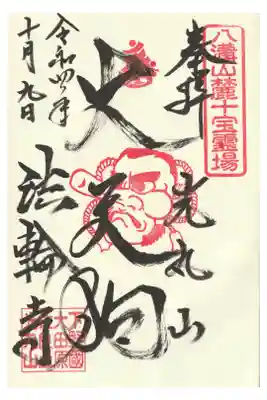 八溝山麓十宝霊場
奉拝
光丸山
大天狗
法輪寺
令和四年
十月九日
下野國
大田原